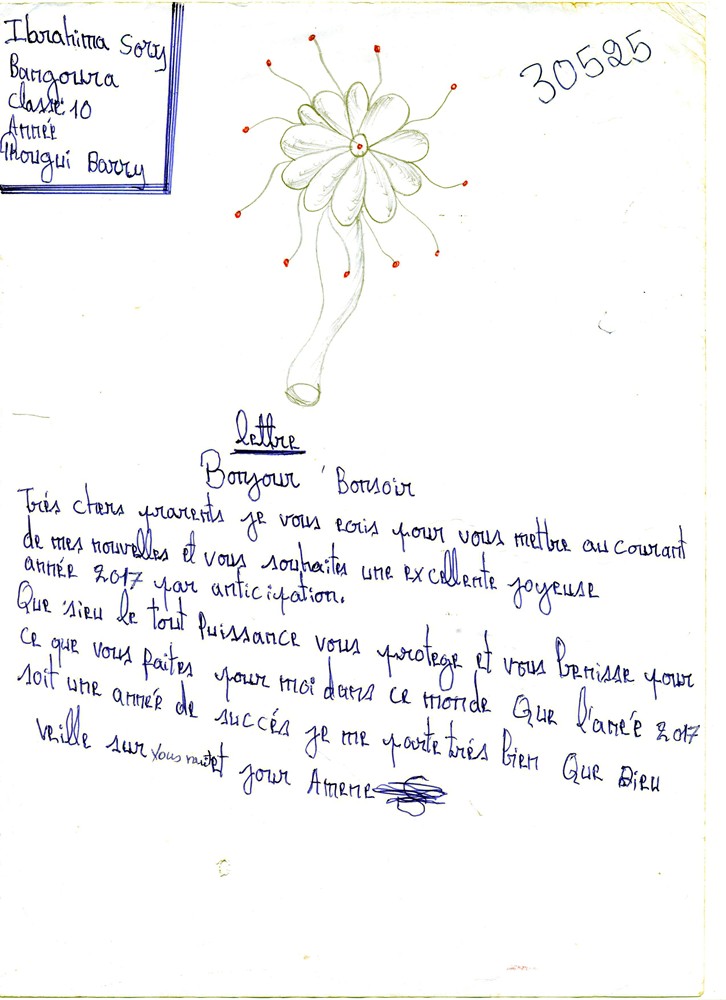 Ibrahima Sory
Bangoura
classe 10
Année
Thougui Barry
30525
lettre
Bonjour ' Bonsoir
Très chers prarents je vous ecris pour vous mettre au courant
de mes nouvelles et vous souhaites une excellente joyeuse
année 2017 par anticipation.
Que 'sieu le tout Puissance vous protege et vous benisse pour
ce que vous faites pour moi dans ce monde Que l'anée 2017
soit une année de succés je me porte trés bien Que Dieu
veille sur vous nuit et jour Amene